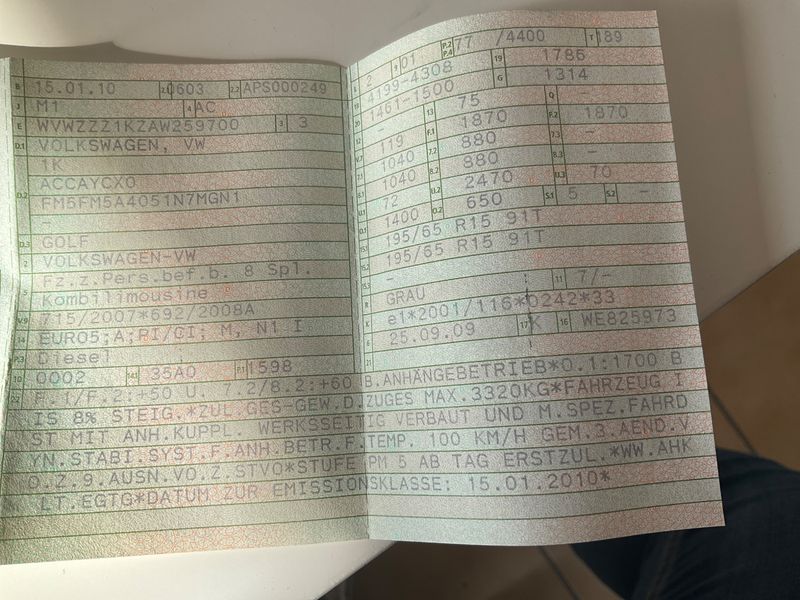 B 15.01.10 2.1 0603 2.2 APS000249
J M1 4 AC
E WVWZZZ1KZAW259700 3 3
D.1 VOLKSWAGEN, VW
1K
D.2 ACCAYCX0
FM5FM5A4051N7MGN1
-
D.3 GOLF
2 VOLKSWAGEN-VW
5 Fz.z.Pers.bef.b. 8 Spl.
Kombilimousine
V.9 715/2007*692/2008A
14 EURO5;A;PI/CI; M, N1 I
P.3 Diesel
10 0002 14.1 35A0 P.1 1598
L 2 9 01 P.2 P.4 77 /4400 T 189
18 4199-4308 19 1786
19 1461-1500 G 1314
20 - 13 75 Q -
119 F.1 1870 F.2 1870
V.7 1040 7.2 880 7.3 -
7.1 1040 8.2 880 8.3 -
8.1 72 U.2 2470 U.3 70
U.1 1400 O.2 650 S.1 5 S.2 -
O.1 195/65 R15 91T
15.1 195/65 R15 91T
15.2
15.3 -
R GRAU 11 7/-
K e1*2001/116*0242*33
6 25.09.09 17 K 16 WE825973
21
22 F.1/F.2:+50 U. 7.2/8.2:+60 B.ANHÄNGEBETRIEB*O.1:1700 B
IS 8% STEIG.*ZUL.GES-GEW.D.ZUGES MAX.3320KG*FAHRZEUG I
ST MIT ANH.KUPPL. WERKSSEITIG VERBAUT UND M.SPEZ.FAHRD
YN.STABI.SYST.F.ANH.BETR.F.TEMP. 100 KM/H GEM.3.AEND.V
O.Z.9.AUSN.VO.Z.STVO*STUFE PM 5 AB TAG ERSTZUL.*WW.AHK
LT.EGTG*DATUM ZUR EMISSIONSKLASSE: 15.01.2010*